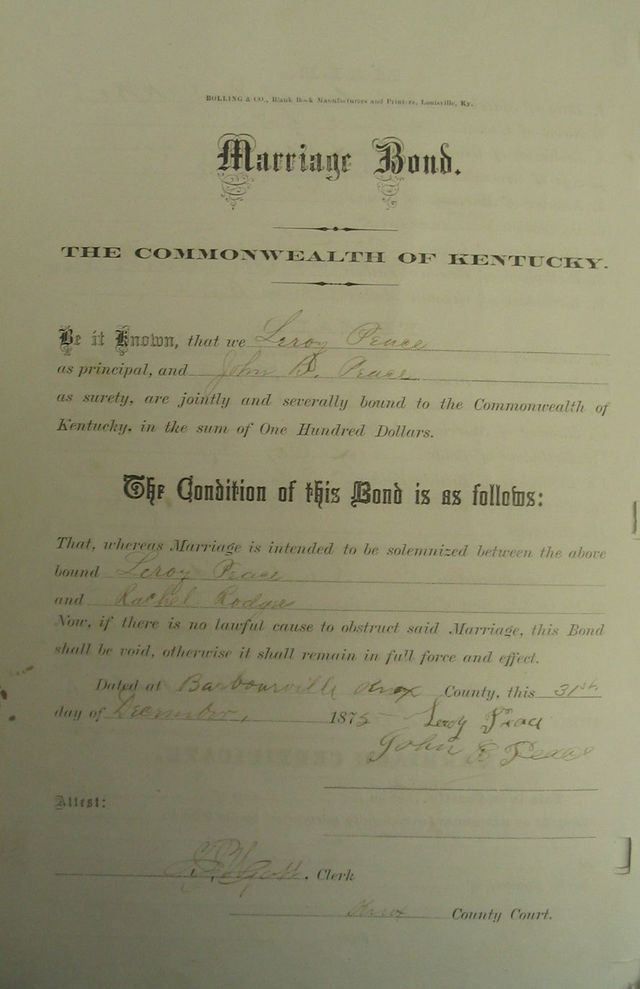 BOLLING & CO., Blank Book Manufacturers and Printers, Louisville, Ky.
Marriage Bond.
THE COMMONWEALTH OF KENTUCKY.
Be it Known, that we Leroy Peace
as principal, and John B. Peace
as surety, are jointly and severally bound to the Commonwealth of
Kentucky, in the sum of One Hundred Dollars.
The Condition of this Bond is as follows:
That, whereas Marriage is intended to be solemnized between the above
bound Leroy Peace
and Rachel Rodger
Now, if there is no lawful cause to obstruct said Marriage, this Bond
shall be void, otherwise it shall remain in full force and effect.
Dated at Barbourville Knox County, this 31st
day of December, 1875 Leroy Peace
John B Peace
Attest:
Clerk
Knox County Court.